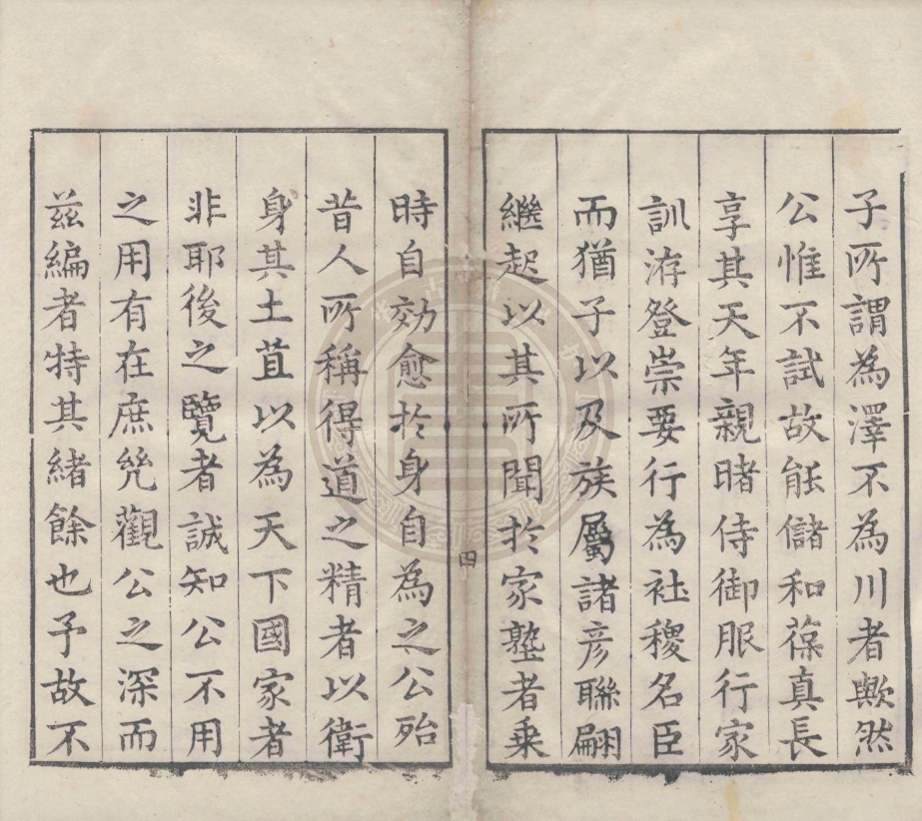 子所謂為澤不為川者歟然
公惟不試故能儲和葆真長
享其天年親睹侍御服行家
訓洊登崇要行為社稷名臣
而猶子以及族屬諸彥聯翩
繼起以其所聞於家塾者乗
時自効愈於身自為之公殆
昔人所稱得道之精者以衛
身其土苴以為天下國家者
非耶後之覽者誠知公不用
之用有在庶㡬觀公之深而
茲編者特其緒餘也予故不
四